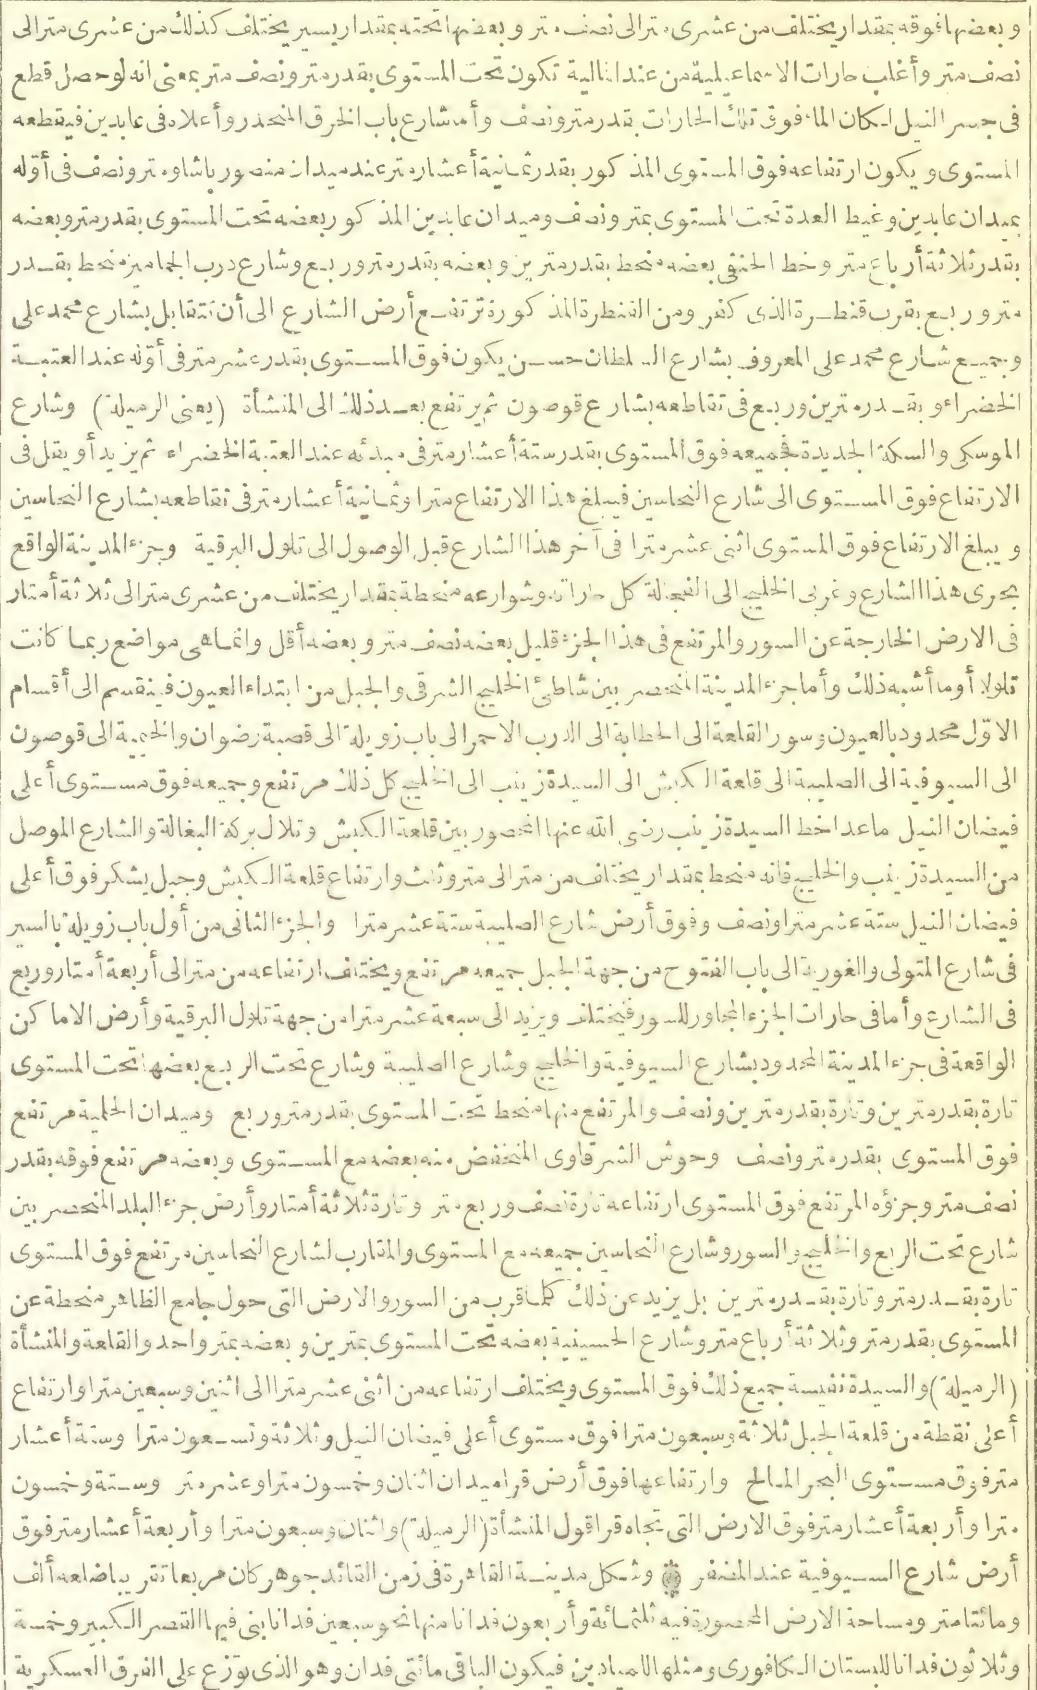 وبعضها فوقه بمقدار يختلف من عشرى متر الى نصف متر وبعضها تحته بمقدار يسير يختلف كذلك من عشرى متر الى
نصف متر وأغلب حارات الاسماعيلية من عند المالية تكون تحت المستوى بقدر متر ونصف متر بمعنى انه لو حصل قطع
فى جسر النيل لكان الماء فوق تلك الحارات بقدر متر ونصف وأما شارع باب الخرق المنحدر وأعلاه فى عابدين فيقطعه
المستوى ويكون ارتفاعه فوق المستوى المذكور بقدر ثمانية أعشار متر عند ميدان منصور باشا ومتر ونصف فى أوّله
بميدان عابدين وغيط العدة تحت المستوى بمتر ونصف وميدان عابدين المذكور بعضه تحت المستوى بقدر متر وبعضه
بقدر ثلاثة أرباع متر وخط الحنفى بعضه منحط بقدر مترين وبعضه بقدر متر وربع وشارع درب الجماميز منحط بقدر
متر وربع بقرب قنطرة الذى كفر ومن القنطرة المذكورة ترتفع أرض الشارع الى أن تتقابل بشارع محمد على
وجميع شارع محمد على المعروف بشارع السلطان حسن يكون فوق المستوى بقدر عشر متر فى أوّله عند العتبة
الخضراء وبقدر مترين وربع فى تقاطعه بشارع قوصون ثم يرتفع بعد ذلك الى المنشأة (يعنى الرميلة) وشارع
الموسكى والسكة الجديدة فجميعه فوق المستوى بقدر ستة أعشار متر فى مبدئه عند العتبة الخضراء ثم يزيد أو يقل فى
الارتفاع فوق المستوى الى شارع النحاسين فيبلغ هذا الارتفاع مترا وثمانية أعشار متر فى تقاطعه بشارع النحاسين
ويبلغ الارتفاع فوق المستوى اثنى عشر مترا فى آخر هذا الشارع قبل الوصول الى تلول البرقية وجزء المدينة الواقع
بحرى هذا الشارع وغربى الخليج الى الفجالة كل حاراته وشوارعه منحطة بمقدار يختلف من عشرى متر الى ثلاثة أمتار
فى الارض الخارجة عن السور والمرتفع فى هذا الجزء قليل بعضه نصف متر وبعضه أقل وانما هى مواضع ربما كانت
تلولا أو ما أشبه ذلك وأما جزء المدينة المنحصر بين شاطئ الخليج الشرقى والجبل من ابتداء العيون فينقسم الى أقسام
الاوّل محدود بالعيون وسور القلعة الى الحطابة الى الدرب الاحمر الى باب زويلة الى قصبة رضوان والخيمية الى قوصون
الى السيوفية الى الصليبة الى قلعة الكبش الى السيدة زينب الى الخليج كل ذلك مرتفع وجميعه فوق مستوى أعلى
فيضان النيل ماعدا خط السيدة زينب رضى الله عنها المحصور بين قلعة الكبش وتلال بركة البغالة والشارع الموصل
من السيدة زينب والخليج فانه منحط بمقدار يختلف من متر الى متر وثلث وارتفاع قلعة الكبش وجبل يشكر فوق أعلى
فيضان النيل ستة عشر مترا ونصف وفوق أرض شارع الصليبة ستة عشر مترا والجزء الثانى من أول باب زويلة بالسير
فى شارع المتولى والغورية الى باب الفتوح من جهة الجبل جميعه مرتفع ويختلف ارتفاعه من متر الى أربعة أمتار وربع
فى الشارع وأما فى حارات الجزء المجاور للسور فيختلف ويزيد الى سبعة عشر مترا من جهة تلول البرقية وأرض الاماكن
الواقعة فى جزء المدينة المحدود بشارع السيوفية والخليج وشارع الصليبة وشارع تحت الربع بعضها تحت المستوى
تارة بقدر مترين وتارة بقدر مترين ونصف والمرتفع منها منحط تحت المستوى بقدر متر وربع وميدان الحلمية مرتفع
فوق المستوى بقدر متر ونصف وحوش الشرقاوى المنخفض منه بعضه مع المستوى وبعضه مرتفع فوقه بقدر
نصف متر وجزؤه المرتفع فوق المستوى ارتفاعه تارة نصف وربع متر وتارة ثلاثة أمتار وأرض جزء البلد المنحصر بين
شارع تحت الربع والخليج والسور وشارع النحاسين جميعه مع المستوى والمقارب لشارع النحاسين مرتفع فوق المستوى
تارة بقدر متر وتارة بقدر مترين بل يزيد عن ذلك كلما قرب من السور والارض التى حول جامع الظاهر منحطة عن
المستوى بقدر متر وثلاثة أرباع متر وشارع الحسينية بعضه تحت المستوى بمترين وبعضه بمتر واحد والقلعة والمنشأة
(الرميلة) والسيدة نفيسة جميع ذلك فوق المستوى ويختلف ارتفاعه من اثنى عشر مترا الى اثنين وسبعين مترا وارتفاع
أعلى نقطة من قلعة الجبل ثلاثة وسبعون مترا فوق مستوى أعلى فيضان النيل وثلاثة وتسعون مترا وستة أعشار
متر فوق مستوى البحر المالح وارتفاعها فوق أرض قراميدان اثنان وخمسون مترا وعشر متر وستة وخمسون
مترا وأربعة أعشار متر فوق الارض التى تجاه قراقول المنشأة (الرميلة) واثنان وسبعون مترا وأربعة أعشار متر فوق
أرض شارع السيوفية عند المضفر وشكل مدينة القاهرة فى زمن القائد جوهر كان مربعا تقريبا ضلعه ألف
ومائتا متر ومساحة الارض المحصورة فيه ثلثمائة وأربعون فدانا منها نحو سبعين فدانا بنى فيها القصر الكبير وخمسة
وثلاثون فدانا للبستان الكافورى ومثلها للميادين فيكون الباقى مائتى فدان وهو الذى توزع على الفرق العسكرية